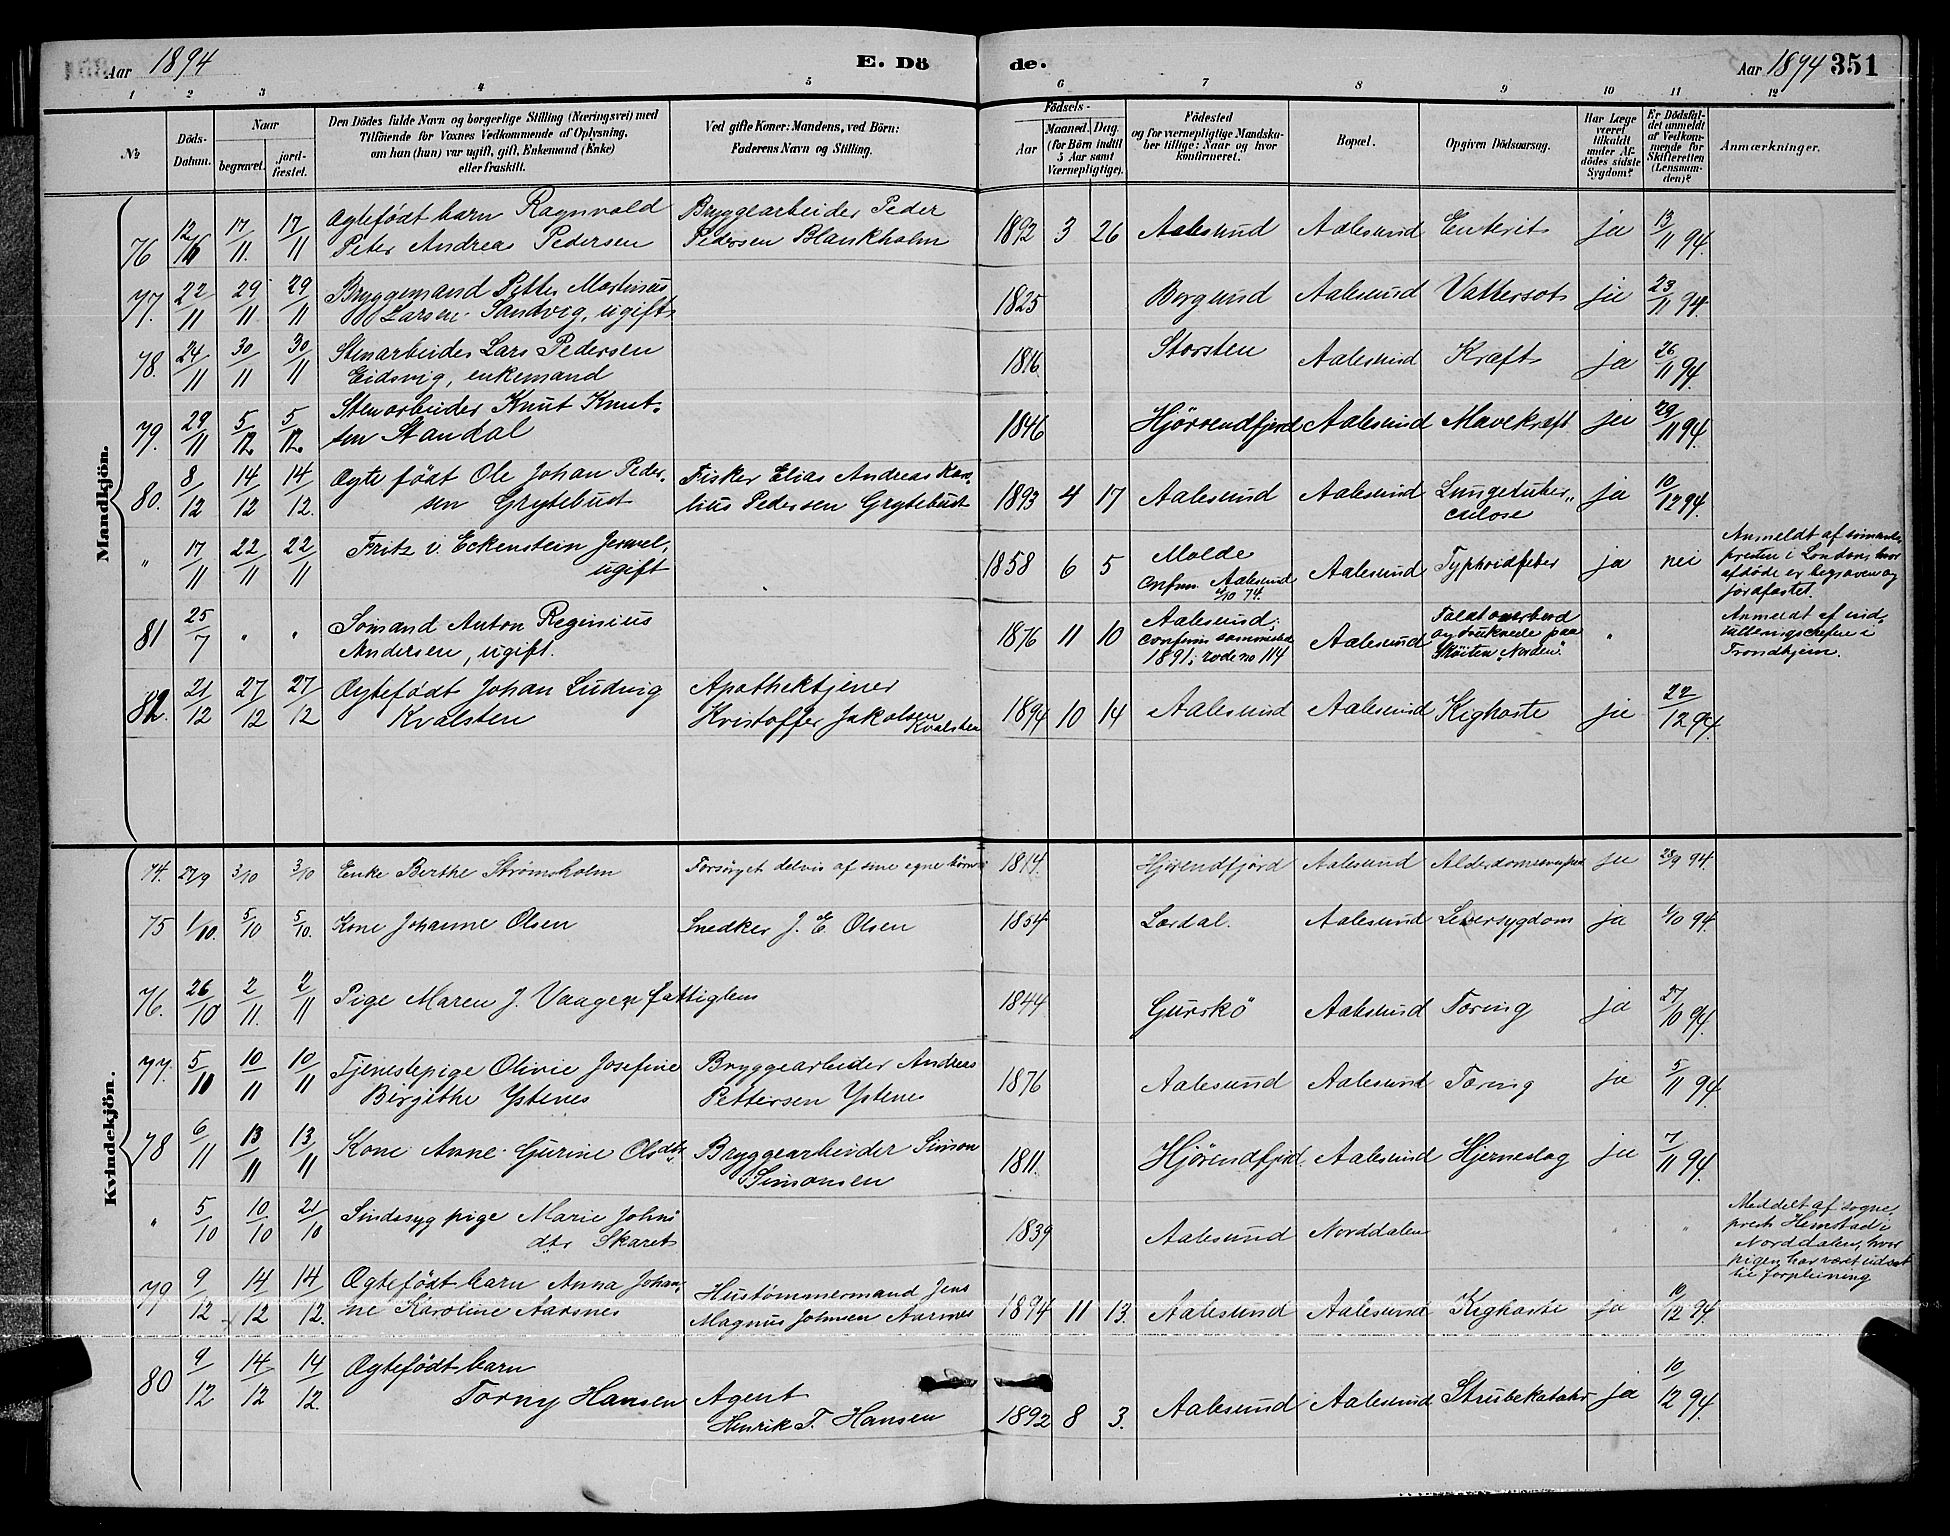 Aar 1894
E. Dö de.
Aar 1894 351
1 2 3 4 5 6 7 8 9 10 11 12
№
Döds-Datum.
Naar
begravet.
jord-fæstet.
Den Dödes fulde Navn og borgerlige Stilling (Næringsvei) med
Tilföiende for Voxnes Vedkommende af Oplysning,
om han (hun) var ugift, gift, Enkemand (Enke)
eller fraskilt.
Ved gifte Koner: Mandens, ved Börn:
Faderens Navn og Stilling.
Födsels-
Aar
Maaned. Dag.
(for Börn indtil
5 Aar samt
Værnepligtige).
Födested
og for værnepligtige Mandska-
ber tillige: Naar og hvor
konfirmeret.
Bopæl.
Opgiven Dödsaarsag.
Har Læge
været
tilkaldt
under Af-
dödes sidste
Sygdom?
Er Dödsfal-
det anmeldt
af Vedkom-
mende for
Skifteretten
(Lensman-
den)?
Anmærkninger.
Mandkjön.
76 12/11 17/11. 17/11 Ægtefødt barn Ragnvald
Peter Andreas Pedersen
Bryggearbeider Peder
Pedersen Blankholm
1892 3 26 Aalesund Aalesund Enterit ja 13/11 94.
77. 22/11 29/11. 29/11 Bryggemand Petter Martinus
Larsen Sandvig, ugift
1825 Borgund Aalesund Vattersot ja 23/11 94.
78. 24/11 30/11 30/11 Stenarbeider Lars Pedersen
Eidsvig, enkemand
1816 Storsten Aalesund Kræft ja 26/11 94.
79. 29/11 5/12. 5/12. Stenarbeider Knut Knut-
sen Standal
1846 Hjørrendfjord Aalesund Mavekræft ja 29/11 94.
80. 8/12 14/12 14/12. Ægte født Ole Johan Peder-
sen Grytebust
Fisker Elias Andreas Kor-
lius Pedersen Grytebust
1893 4 17 Aalesund Aalesund Lungetuber-
culose ja 10/12 94.
" 17/11 22/11 22/11 Fritz v. Eckenstein Jervel,
ugift
1858 6 5 Molde
Confirm. Aalesund
4/10 74.
Aalesund Typhoidfeber ja nei
Anmeldt af sömands-
presten i London, hvor
afdøde er begraven og
jordfæstet.
81 25/7 " " Sömand Anton Reginius
Andersen, ugift.
1876 11 10 Aalesund;
confirm sammested
1891; rode no 114
Aalesund Faldt overbord
og druknede paa
Skøiten "Norden". "
Anmeldt af ind-
rulleringschefen i
Trondhjem.
82. 21/12 27/12 27/12 Ægtefødt Johan Ludvig
Kvalsten
Apothektjener
Kristoffer Jakobsen
Kvalsten
1894 10 14 Aalesund Aalesund Kighoste ja 22/12 94.
Kvindekjön.
74. 27/9 3/10 3/10 Enke Berthe Strømsholm
Forsørget delvis af sine egne børn
1814. Hjørendfjord Aalesund ja 28/9 94.
75 1/10. 5/10 5/10. Kone Johanne Olsen
Snedker J. E. Olsen
1854 Lærdal. Aalesund Leversygdom ja 1/10 94.
76. 26/10 2/11. 2/11 Pige Maren J. Vaagen, fattiglem
1844 Gurskö Aalesund Tæring ja 27/10 94.
77. 5/11 10/11 10/11 Tjenestepige Olivie Josefine
Birgithe Ystenes
Bryggearbeider Andreas
Pettersen Ystenes
1876 Aalesund Aalesund Tæring ja 5/11 94.
78 6/11 13/11 13/11 Kone Anne Gurine Olsdtr.
Bryggearbeider Simon
Simonsen
1811. Hjörendfjord Aalesund Hjerneslag ja 7/11 94.
" 5/10 10/10 21/10 Sindssyg pige Marie Johns
dtr Skaret
1839 Aalesund Norddalen " "
Meddelt af sogne-
prest Hemstad i
Norddalen, hvor
pigen har vært udsat
til forpleining
79 9/12 14/12 14/12. Ægtefødt barn Anna Johan-
ne Karoline Aarsnes
Hustømmermand Jens
Magnus Johnsen Aarsnes
1894 11 13. Aalesund Aalesund Kighoste ja 10/12 94.
80 9/12 14/12 14/12. Ægtefødt barn
Torny Hansen
Agent
Henrik T. Hansen
1892 8 3. Aalesund Aalesund Strubekatahr ja 10/12 94.